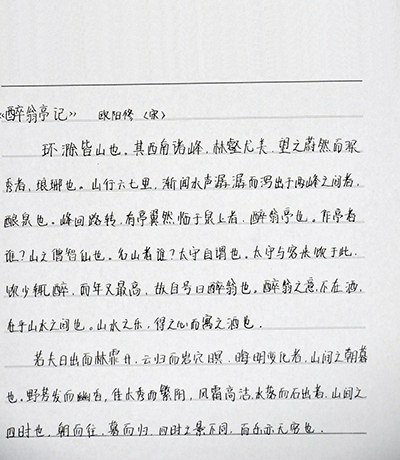 《醉翁亭记》 欧阳修（宋）
环滁皆山也。其西南诸峰，林壑尤美，望之蔚然而深
秀者，琅琊也。山行六七里，渐闻水声潺潺而泻出于两峰之间者，
酿泉也。峰回路转，有亭翼然临于泉上者，醉翁亭也。作亭者
谁？山之僧智仙也。名山者谁？太守自谓也。太守与客来饮于此，
饮少辄醉，而年又最高，故自号曰醉翁也。醉翁之意不在酒，
在乎山水之间也。山水之乐，得之心而寓之酒也。
若夫日出而林霏开，云归而岩穴暝，晦明变化者，山间之朝暮
也。野芳发而幽香，佳木秀而繁阴，风霜高洁，水落而石出者，山间之
四时也。朝而往，暮而归，四时之景不同，而乐亦无穷也。